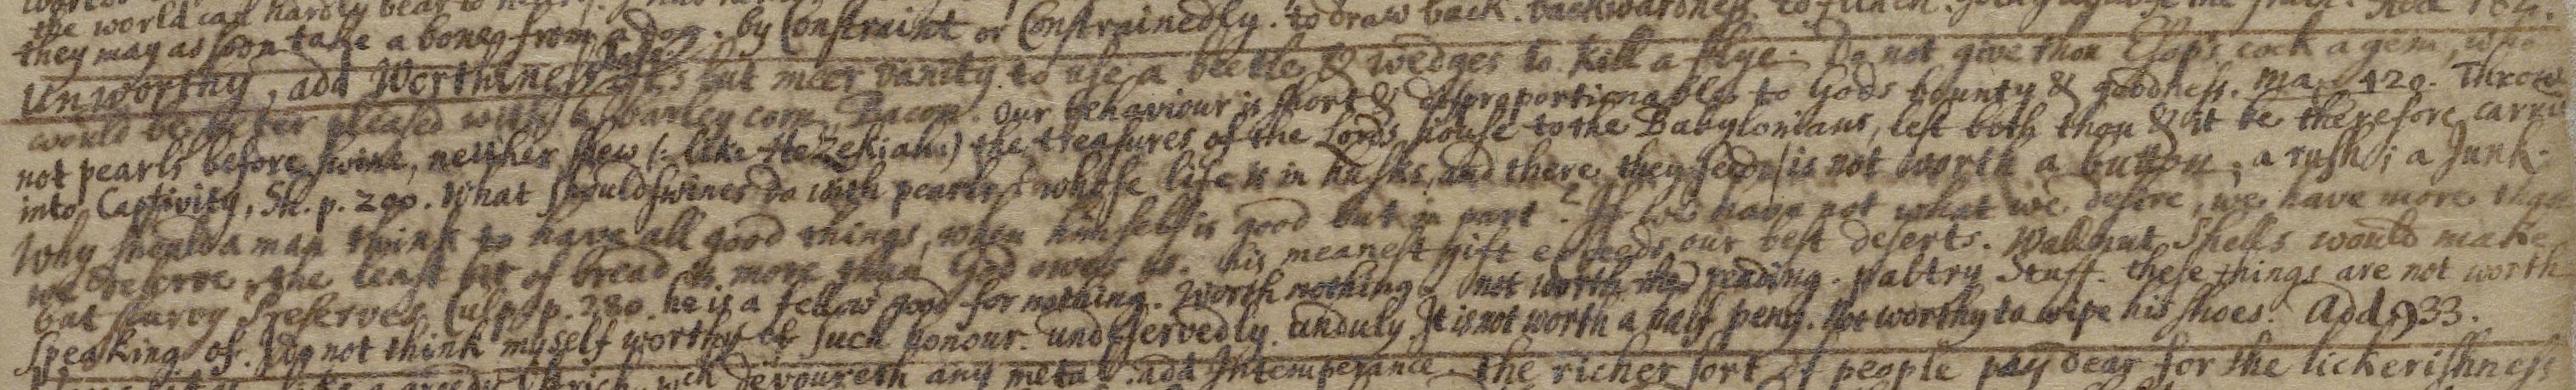 the world can hardly bear to
they may as soon take a boneg from a dog. by Constraint or Constrainedly. to draw back. backwardness. to flinch.
Unworthy, add Worthiness base. its but meer vanity to use a beetle & wedges to kill a flye. Do not give thou Esop's cock a gem, who
would be better pleased with a barley corn, Bacon. Our behaviour is short & disproportionable to Gods bounty & goodness. Ma. 420. Throw
not pearls before swine, neither shew (: like Hezekiah:) the treasures of the Lords house to the Babylonians, lest both thou & it be therefore carried
into Captivity, Sh. p. 200. What should swines do with pearls? whose life is in husks, and there they feed / is not worth a button; a rush; a Junk.
Why should a man think to have all good things, when himself is good but in part? If we have not what we desire, we have more than
we deserve. the least bit of bread is more than God owes us. his meanest gift exceeds our best deserts. Wallnut Shells would make
but scurvy Preserves. Culp. p. 280. he is a fellow good for nothing. Worth nothing. not worth the reading. paltry Stuff. these things are not worth
speaking of. I do not think myself worthy of such honour. undeservedly. unduly. It is not worth a half peny. not worthy to wipe his shoes. Add 933.
a greedy wch devoureth any metal. add Intemperance. the richer sort of people pay dear for the lickerishness